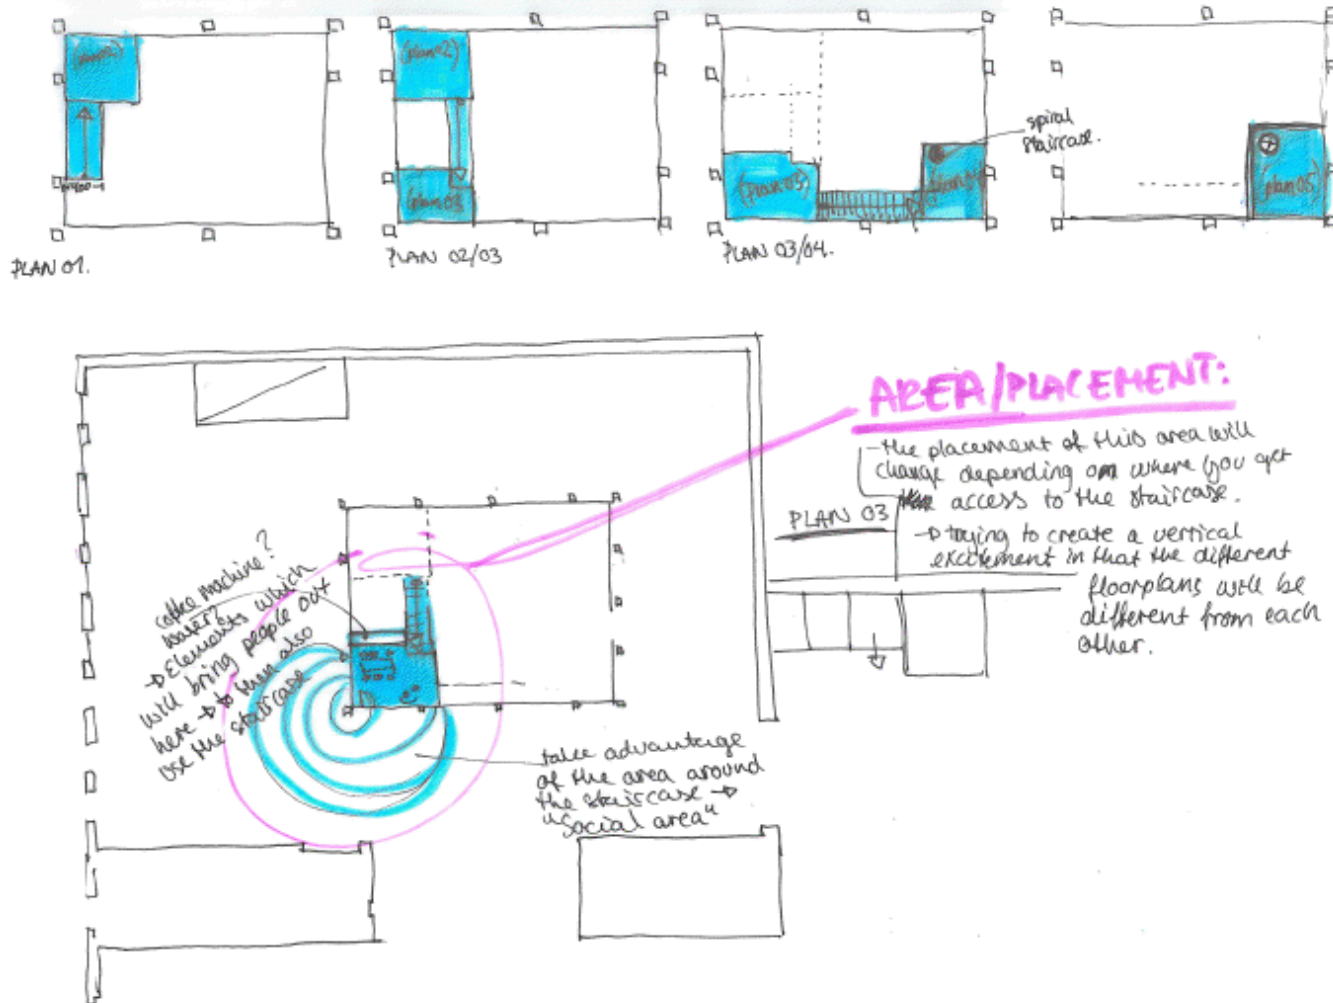 (plan 02)
PLAN 01.
(plan 02)
(plan 03
PLAN 02/03
(plan 03)
PLAN 03/04.
spiral
staircase.
(plan 05)
AREA/PLACEMENT:
- the placement of this area will
change depending on where you get
access to the staircase.
PLAN 03
→ trying to create a vertical
excitement in that the different
floorplans will be
different from each
other.
coffee machine?
water?
→ Elements which
will bring people out
here → to then also
use the staircase
take advantage
of the area around
the staircase →
"Social area"